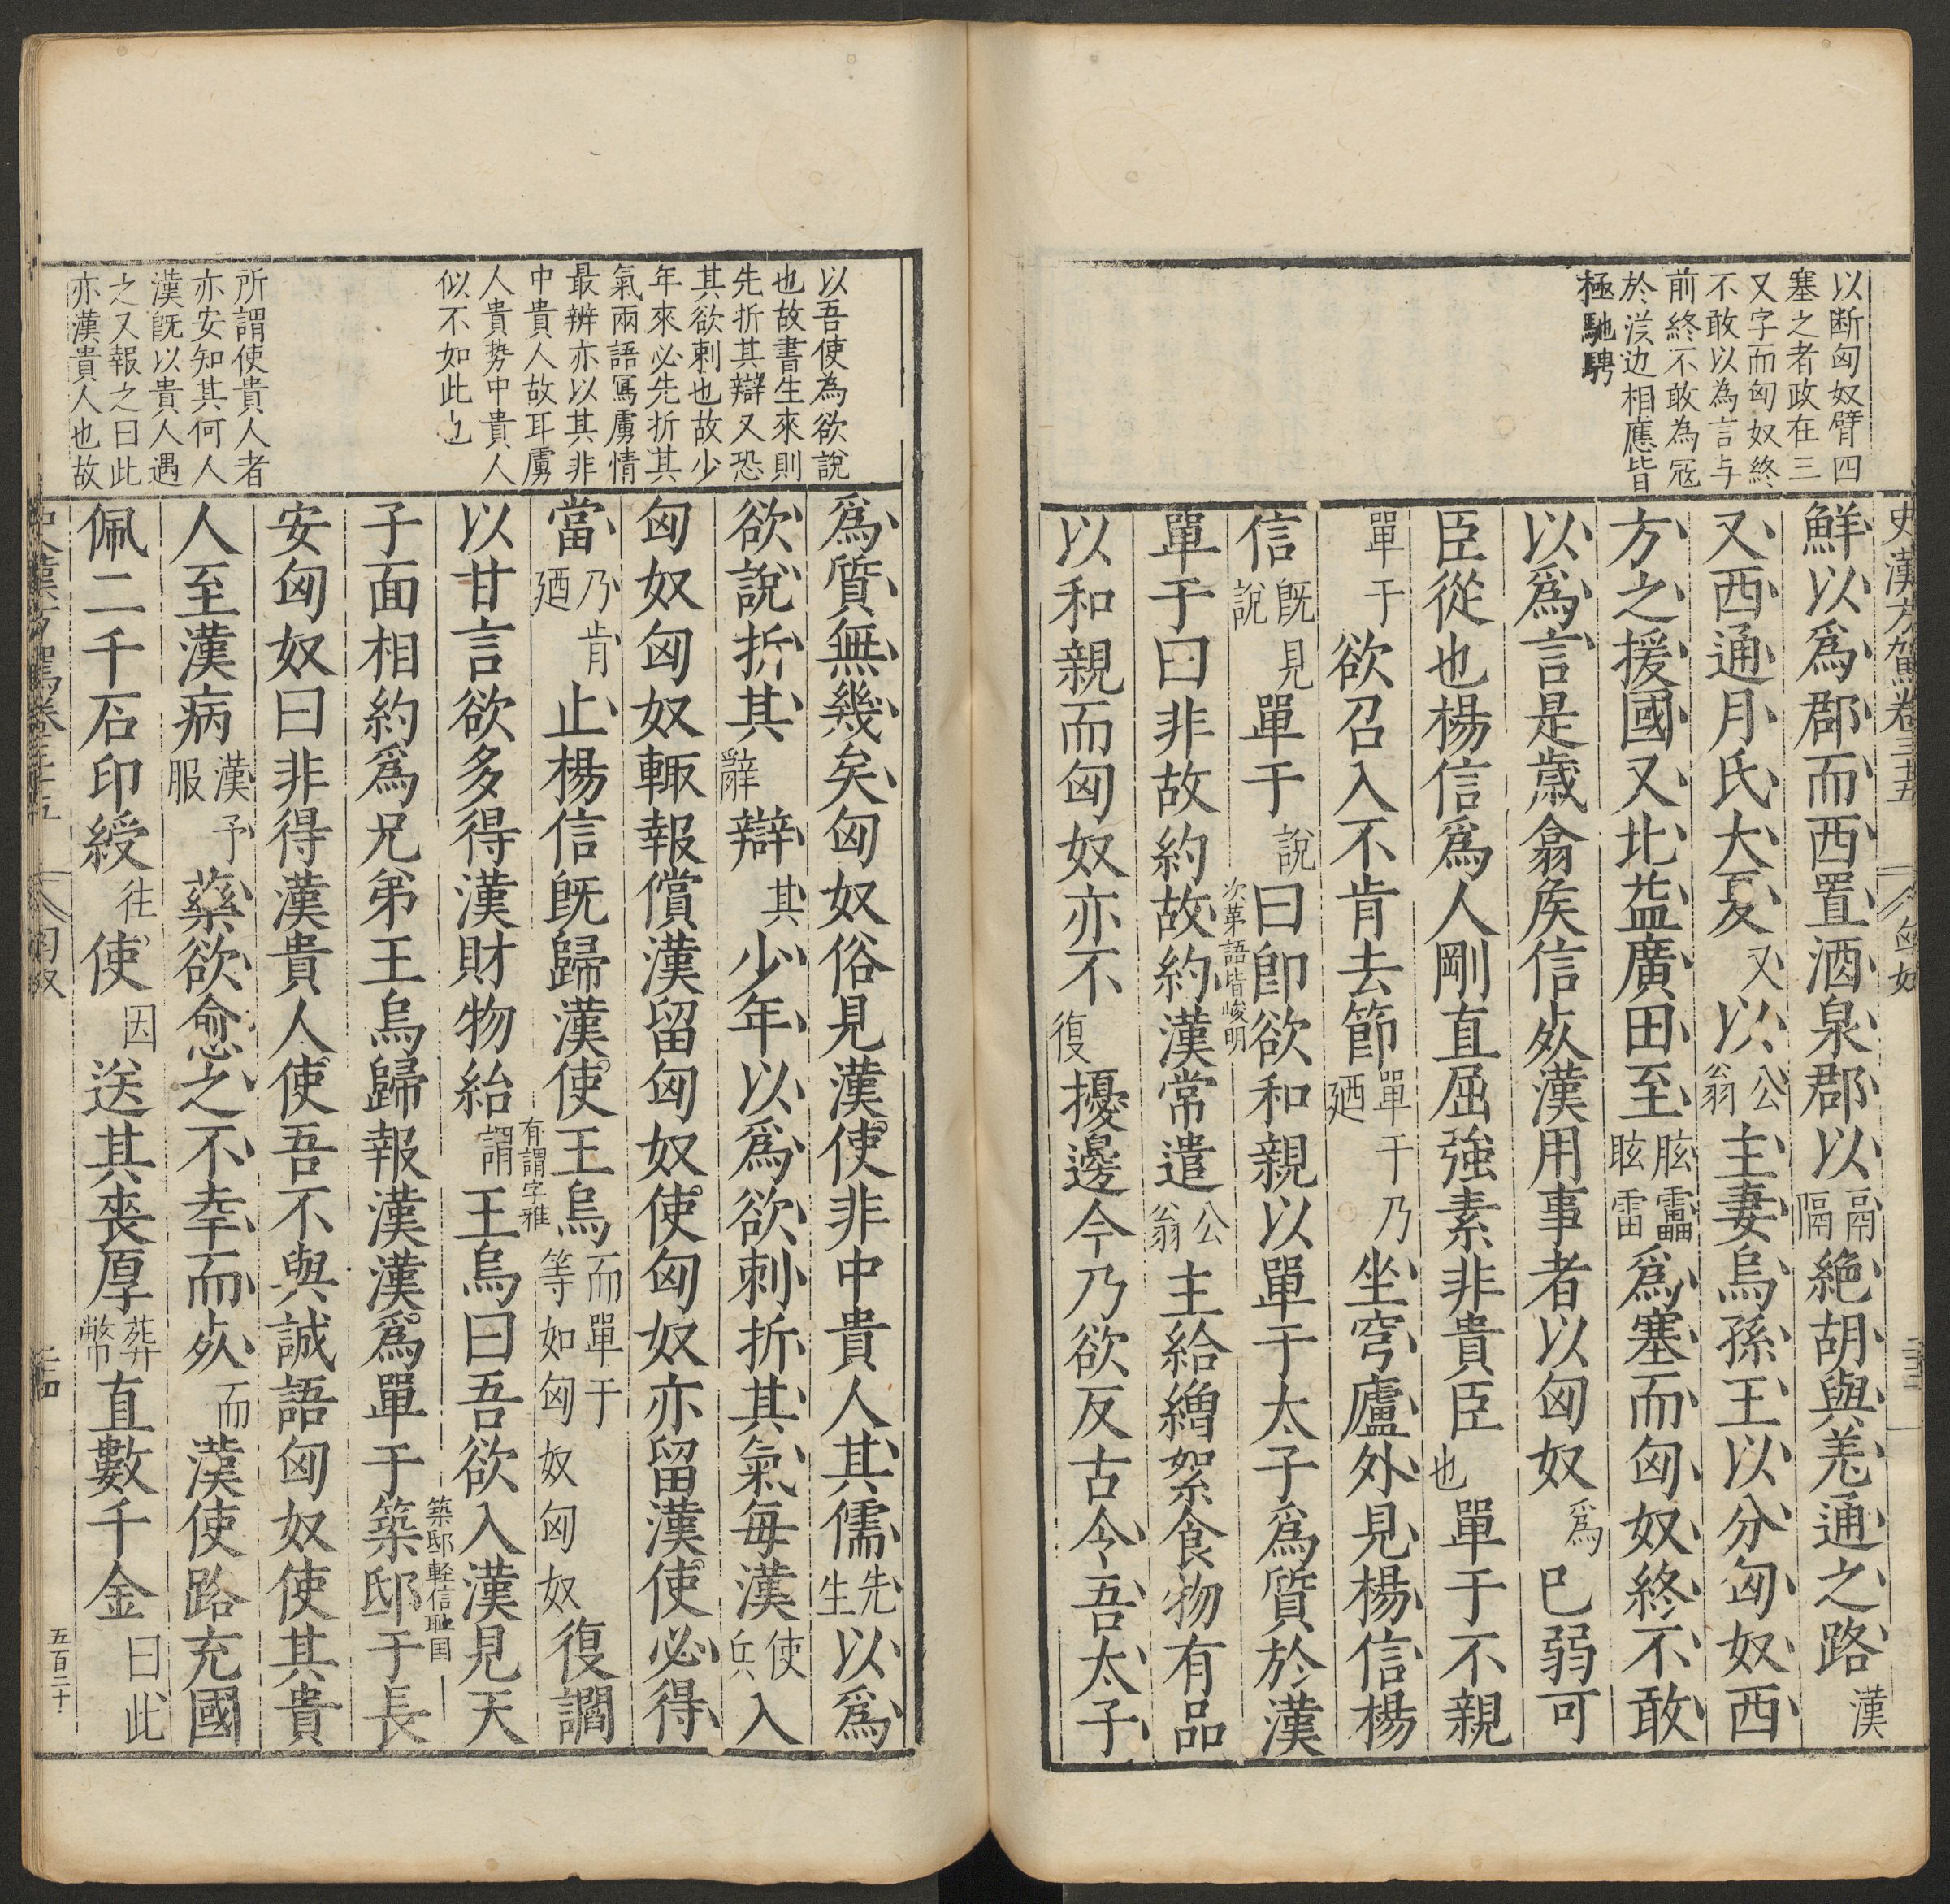 以断匈奴臂四
塞之者政在三
又字而匈奴終
不敢以為言与
前終不敢為冦
於漢边相應皆
極馳騁
史漢方駕卷三十五
匈奴
三十三
鮮以爲郡而西置酒泉郡以鬲隔絶胡與羌通之路漢
又西通月氏大夏又以公翁主妻烏孫王以分匈奴西
方之援國又北益廣田至胘靁眩雷爲塞而匈奴終不敢
以爲言是歲翕侯信死漢用事者以匈奴爲已弱可
臣從也楊信爲人剛直屈強素非貴臣也單于不親
單于欲召入不肯去節單于廼乃坐穹廬外見楊信楊
信既說見單于說曰即欲和親以單于太子爲質於漢
次苐語皆峻明
單于曰非故約故約漢常遣公翁主給繒絮食物有品
以和親而匈奴亦不復擾邊今乃欲反古令吾太子
以吾使為欲說
也故書生來則
先折其辯又恐
其欲刺也故少
年來必先折其
氣兩語冩虜情
最辨亦以其非
中貴人故耳虜
人貴势中貴人
似不如此也
所謂使貴人者
亦安知其何人
漢既以貴人遇
之又報之曰此
亦漢貴人也故
爲質無幾矣匈奴俗見漢使非中貴人其儒先生以爲
欲說折其辭辯其少年以爲欲刺折其氣每漢使兵入
匈奴匈奴輒報償漢留匈奴使匈奴亦留漢使必得
當乃廼肯止楊信既歸漢使王烏而單于等如匈奴匈奴復讇
有謂字雅
以甘言欲多得漢財物紿謂王烏曰吾欲入漢見天
子面相約爲兄弟王烏歸報漢漢爲單于築邸于長
築邸軽信耻国
安匈奴曰非得漢貴人使吾不與誠語匈奴使其貴
人至漢病漢服予藥欲愈之不幸而死而漢使路充國
佩二千石印綬往使因送其喪厚葬幣直數千金曰此
史漢方駕卷三十五
匈奴
三十四
五百二十